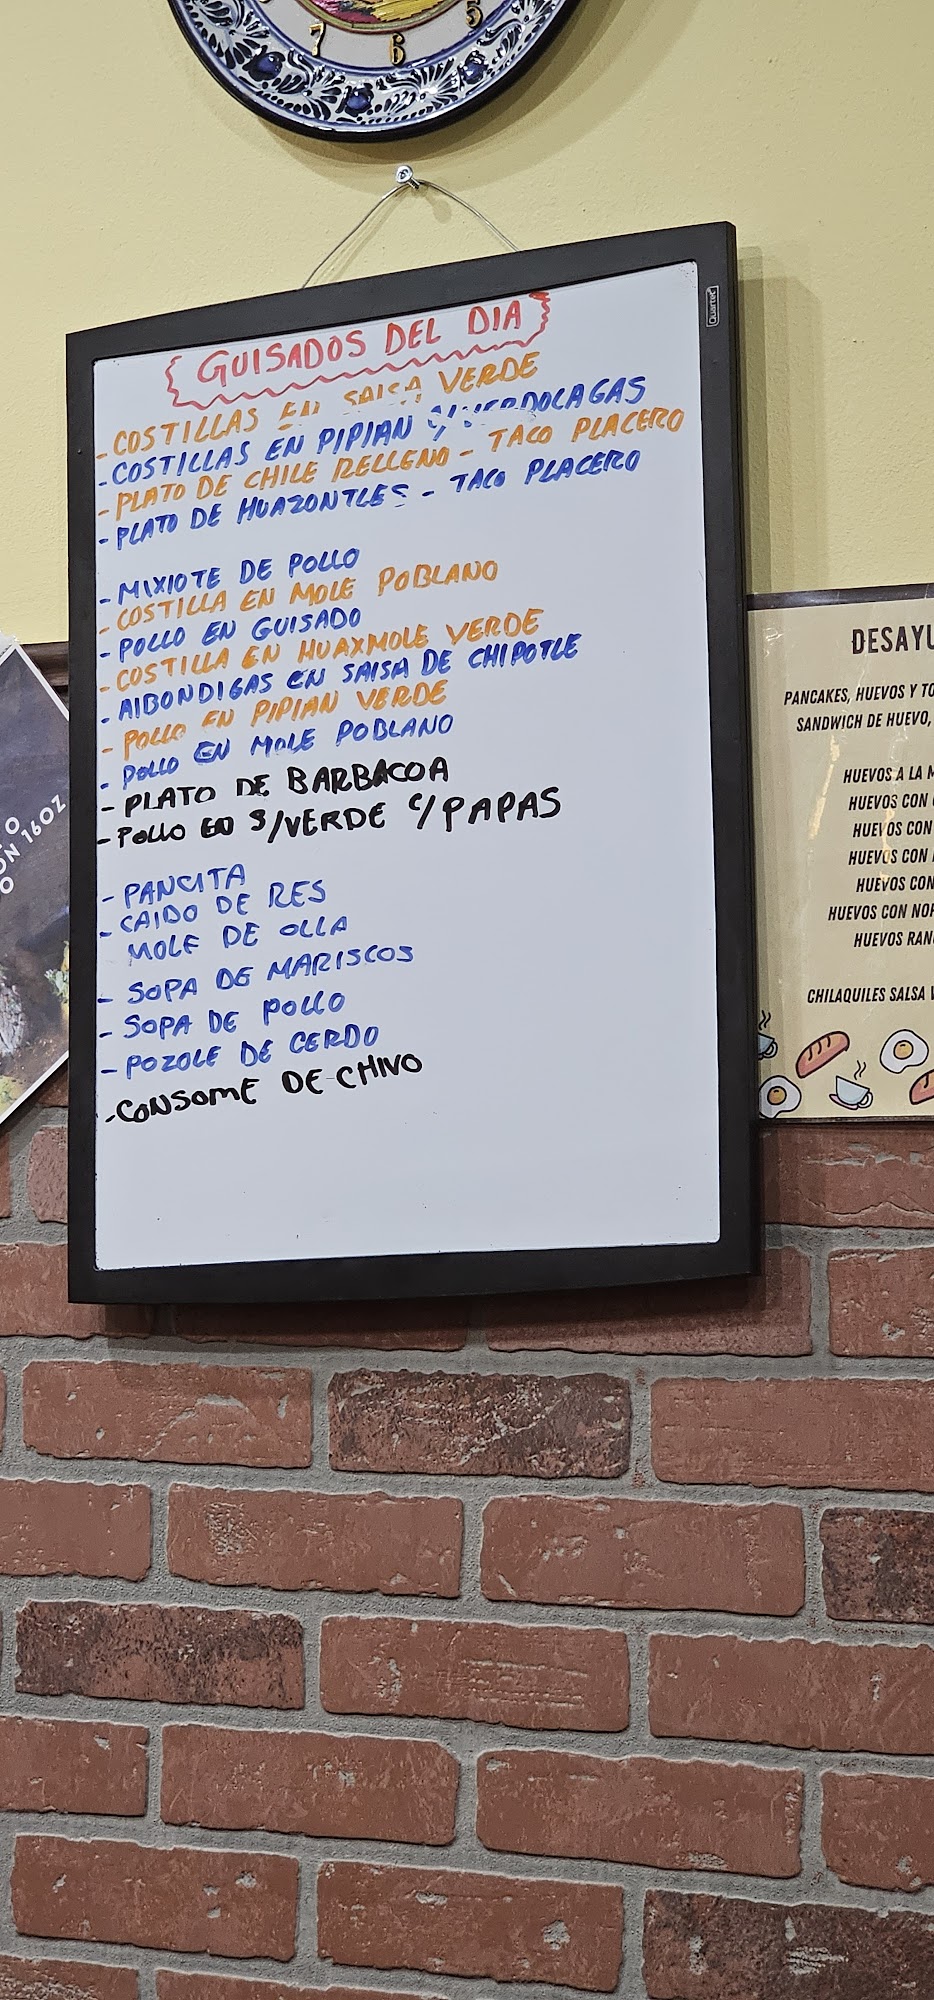 7 6 5
Quartet
GUISADOS DEL DIA
- COSTILLAS EN SALSA VERDE
- COSTILLAS EN PIPIAN C/VERDOLAGAS
- PLATO DE CHILE RELLENO - TACO PLACERO
- PLATO DE HUAZONTLES - TACO PLACERO
- MIXIOTE DE POLLO
- COSTILLA EN MOLE POBLANO
- POLLO EN GUISADO
- COSTILLA EN HUAXMOLE VERDE
- AlBONDIGAS EN SAlSA DE CHIPOTLE
- POLLO EN PIPIAN VERDE
- POLLO EN MOLE POBLANO
- PLATO DE BARBACOA
- POLLO EN S/VERDE C/PAPAS
- PANCITA
- CAlDO DE RES
MOLE DE OLLA
- SOPA DE MARISCOS
- SOPA DE POLLO
- POZOLE DE CERDO
- CONSOME DE CHIVO
DESAYU
PANCAKES, HUEVOS Y TO
SANDWICH DE HUEVO,
HUEVOS A LA M
HUEVOS CON
HUEVOS CON
HUEVOS CON
HUEVOS CON
HUEVOS CON NOP
HUEVOS RAN
CHILAQUILES SALSA V
O
ON 16OZ
O